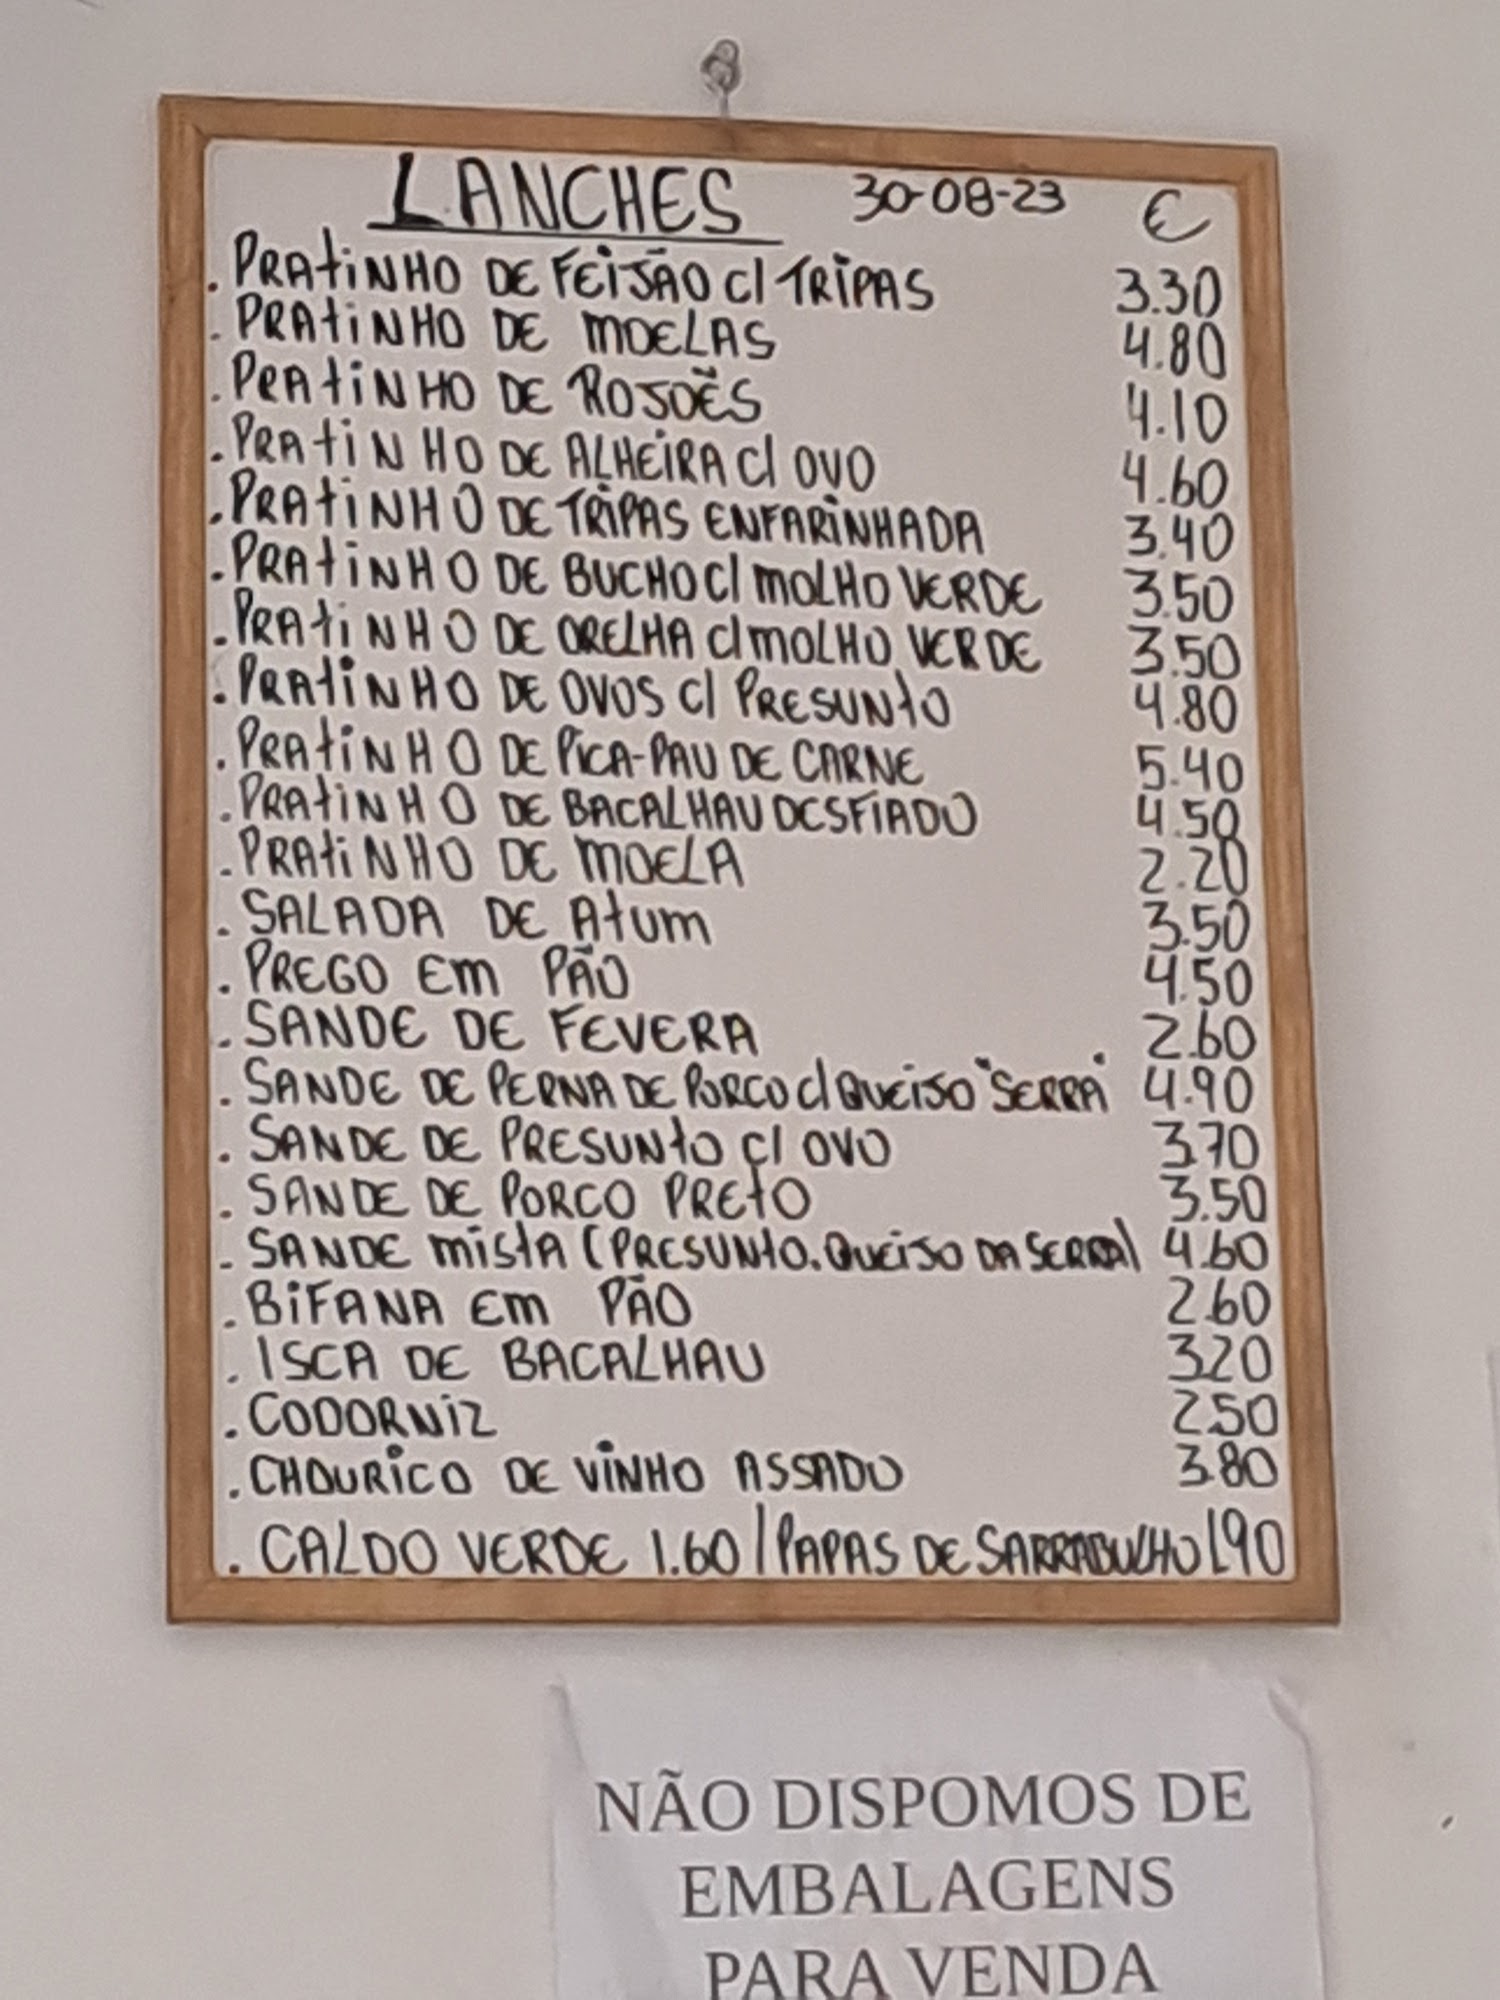 LANCHES 30-08-23 €
. PRATINHO DE FEIJÃO C/ TRIPAS 3.30
. PRATINHO DE MOELAS 4.80
. PRATINHO DE ROJÕES 4.10
. PRATINHO DE ALHEIRA C/ OVO 4.60
. PRATINHO DE TRIPAS ENFARINHADA 3.40
. PRATINHO DE BUCHO C/ MOLHO VERDE 3.50
. PRATINHO DE ORELHA C/ MOLHO VERDE 3.50
. PRATINHO DE OVOS C/ PRESUNTO 4.80
. PRATINHO DE PICA-PAU DE CARNE 5.40
. PRATINHO DE BACALHAU DESFIADO 4.50
. PRATINHO DE MOELA 2.20
. SALADA DE ATUM 3.50
. PREGO EM PÃO 4.50
. SANDE DE FEVERA 2.60
. SANDE DE PERNA DE PORCO C/ QUEIJO "SERRA" 4.90
. SANDE DE PRESUNTO C/ OVO 3.70
. SANDE DE PORCO PRETO 3.50
. SANDE MISTA (PRESUNTO.QUEIJO DA SERRA) 4.60
. BIFANA EM PÃO 2.60
. ISCA DE BACALHAU 3.20
. CODORNIZ 2.50
. CHOURICO DE VINHO ASSADO 3.80
. CALDO VERDE 1.60 / PAPAS DE SARRABULHO 1.90
NÃO DISPOMOS DE
EMBALAGENS
PARA VENDA